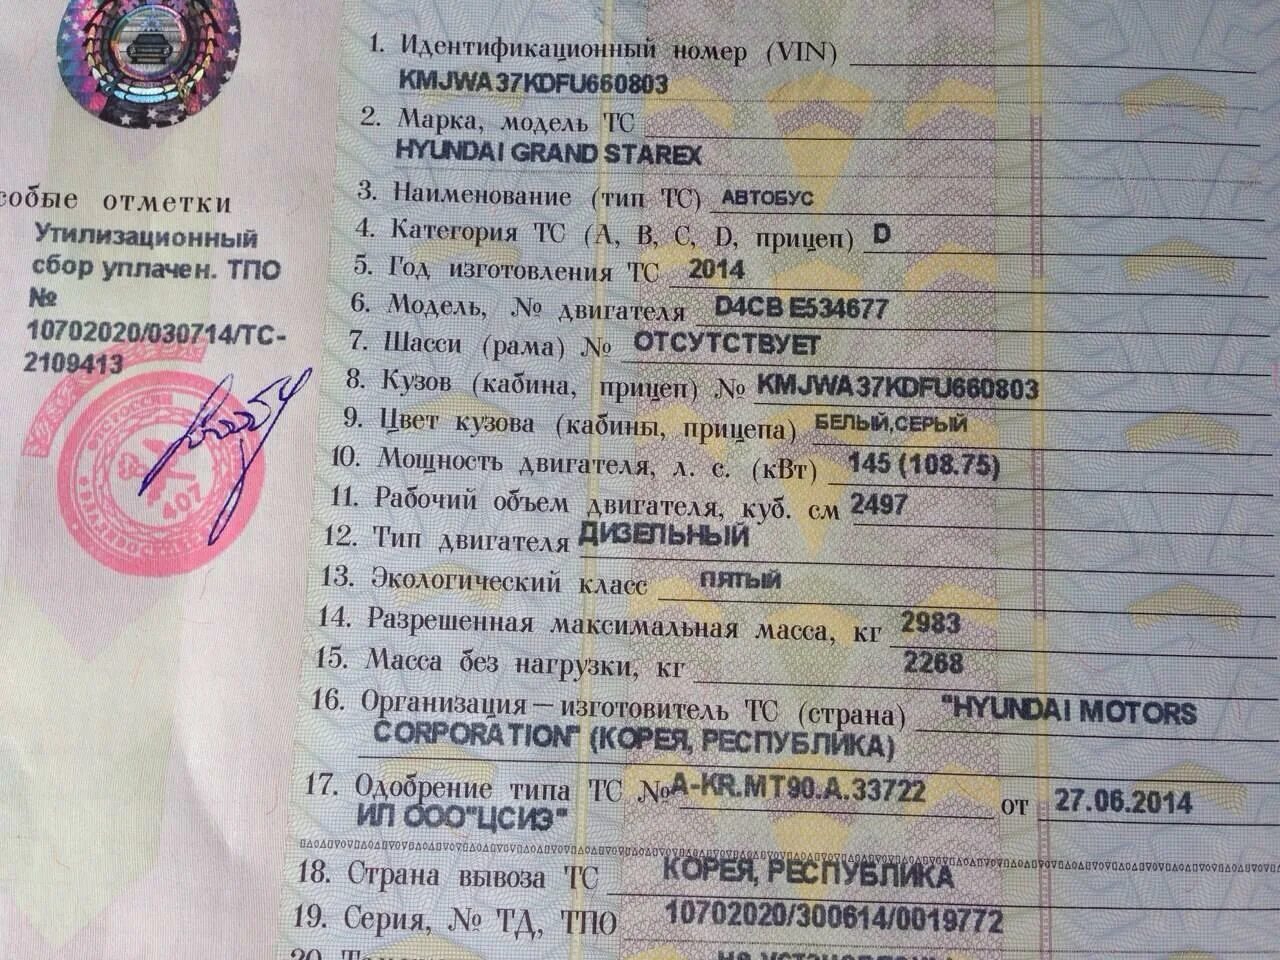 1. Идентификационный номер (VIN)
KMJWA37KDFU660803
2. Марка, модель ТС
HYUNDAI GRAND STAREX
3. Наименование (тип ТС) АВТОБУС
4. Категория ТС (A, B, C, D, прицеп) D
5. Год изготовления ТС 2014
6. Модель, № двигателя D4CB E534677
7. Шасси (рама) № ОТСУТСТВУЕТ
8. Кузов (кабина, прицеп) № KMJWA37KDFU660803
9. Цвет кузова (кабины, прицепа) БЕЛЫЙ,СЕРЫЙ
10. Мощность двигателя, л. с. (кВт) 145 (108.75)
11. Рабочий объем двигателя, куб. см 2497
12. Тип двигателя ДИЗЕЛЬНЫЙ
13. Экологический класс ПЯТЫЙ
14. Разрешенная максимальная масса, кг 2983
15. Масса без нагрузки, кг 2268
16. Организация—изготовитель ТС (страна) "HYUNDAI MOTORS
CORPORATION" (КОРЕЯ, РЕСПУБЛИКА)
17. Одобрение типа ТС № A-KR.MT90.A.33722 от 27.06.2014
ИП ООО"ЦСИЭ"
18. Страна вывоза ТС КОРЕЯ, РЕСПУБЛИКА
19. Серия, № ТД, ТПО 10702020/300614/0019772
собые отметки
Утилизационный
сбор уплачен. ТПО
№
10702020/030714/ТС-
2109413
407